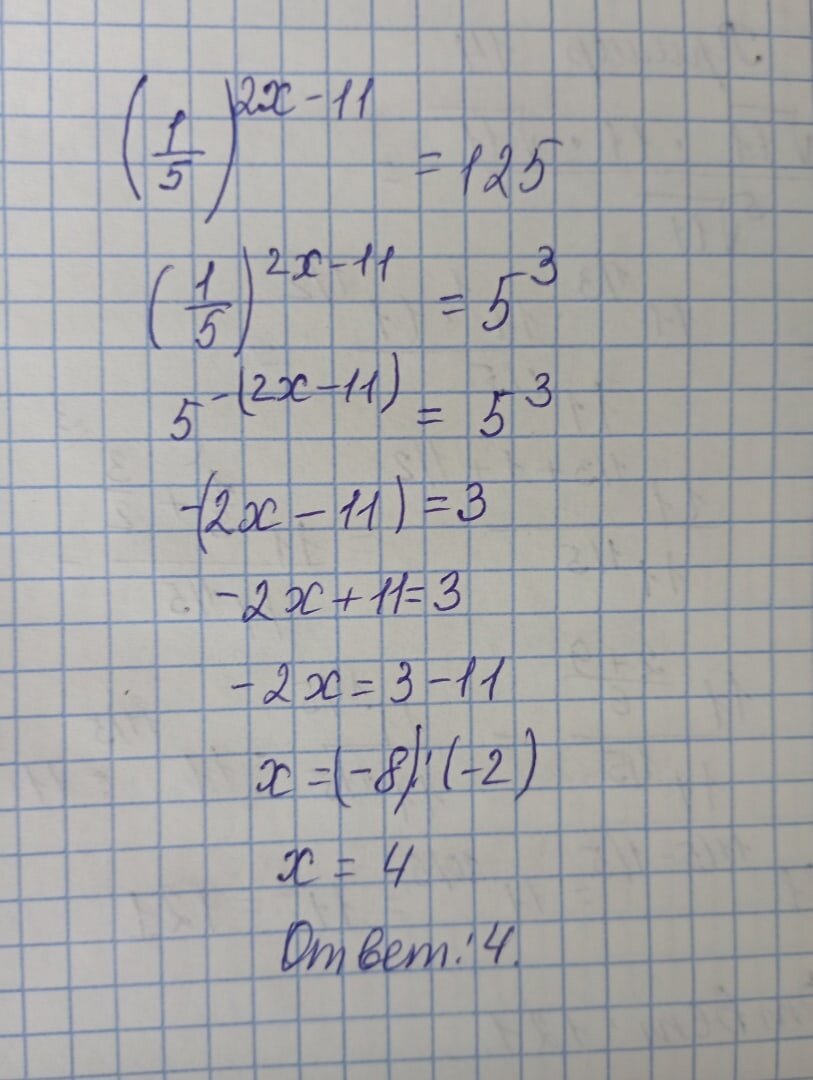 (1/5)^(2x-11) = 125
(1/5)^(2x-11) = 5^3
5^-(2x-11) = 5^3
-(2x-11)=3
-2x+11=3
-2x=3-11
x=(-8):(-2)
x=4
Ответ: 4.